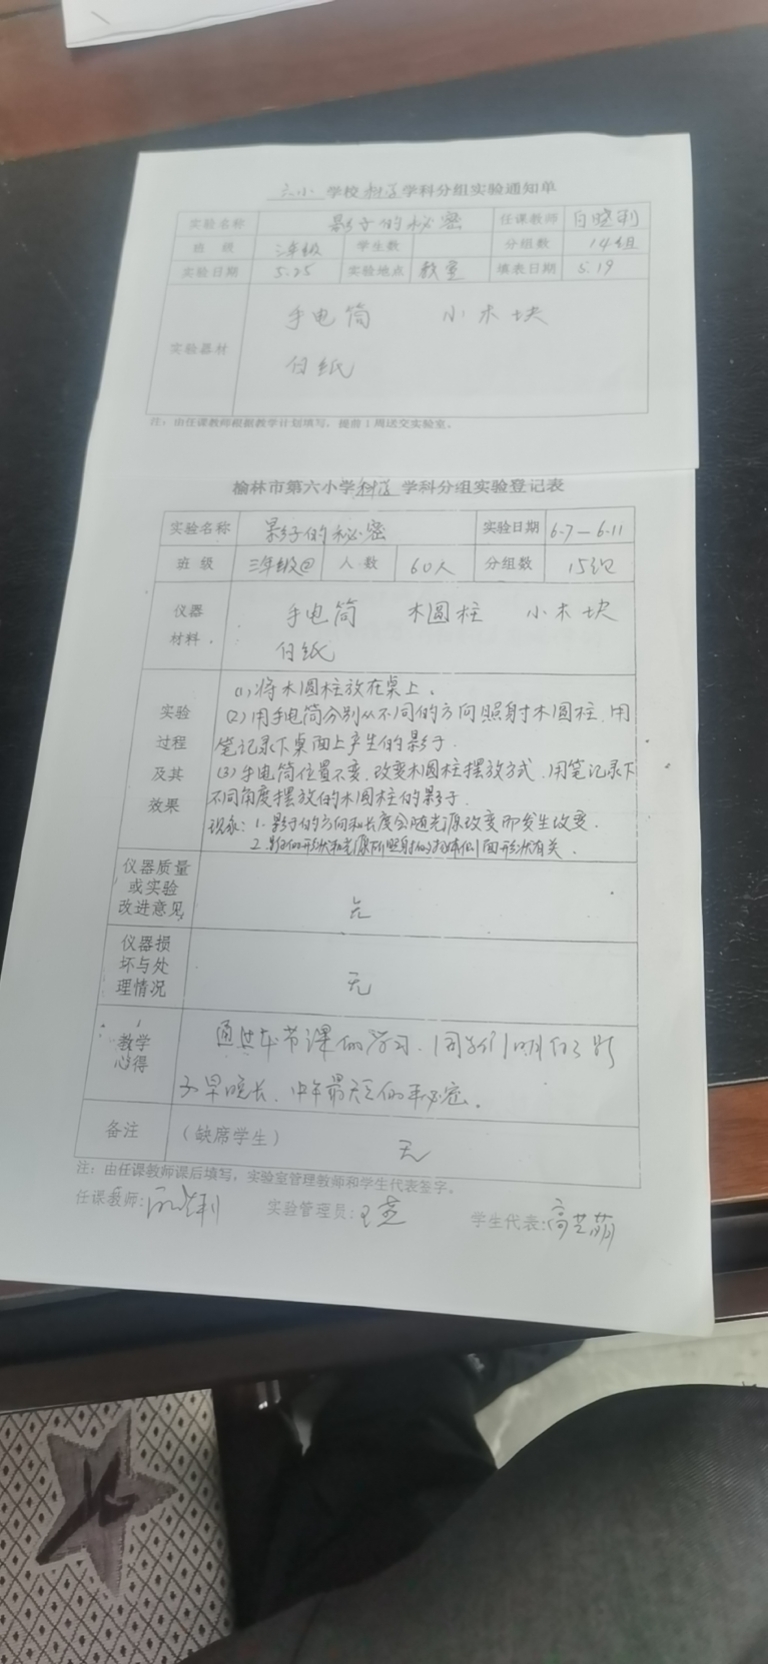 六小 学校科学学科分组实验通知单
实验名称 影子的秘密 任课教师 白晓利
班 级 三年级 学生数 分组数 14组
实验日期 5.25 实验地点 教室 填表日期 5.19
实验器材 手电筒 小木块
白纸
注：由任课教师根据教学计划填写，提前1周送交实验室。
榆林市第六小学科学学科分组实验登记表
实验名称 影子的秘密 实验日期 6.7—6.11
班 级 三年级 人 数 60人 分组数 15组
仪器材料 手电筒 木圆柱 小木块
白纸
实验过程及其效果
(1)将木圆柱放在桌上.
(2)用手电筒分别从不同的方向照射木圆柱.用
笔记录下桌面上产生的影子.
(3)手电筒位置不变.改变木圆柱摆放方式.用笔记录下
不同角度摆放的木圆柱的影子.
现象：1.影子的方向和长度会随光源改变而发生改变.
2.影子的形状和光源所照射的物体侧面形状有关.
仪器质量或实验改进意见 无
仪器损坏与处理情况 无
教学心得 通过本节课的学习.同学们明白了影
子早晚长.中午最短的秘密。
备注 （缺席学生） 无
注：由任课教师课后填写，实验室管理教师和学生代表签字。
任课教师: 实验管理员: 学生代表: